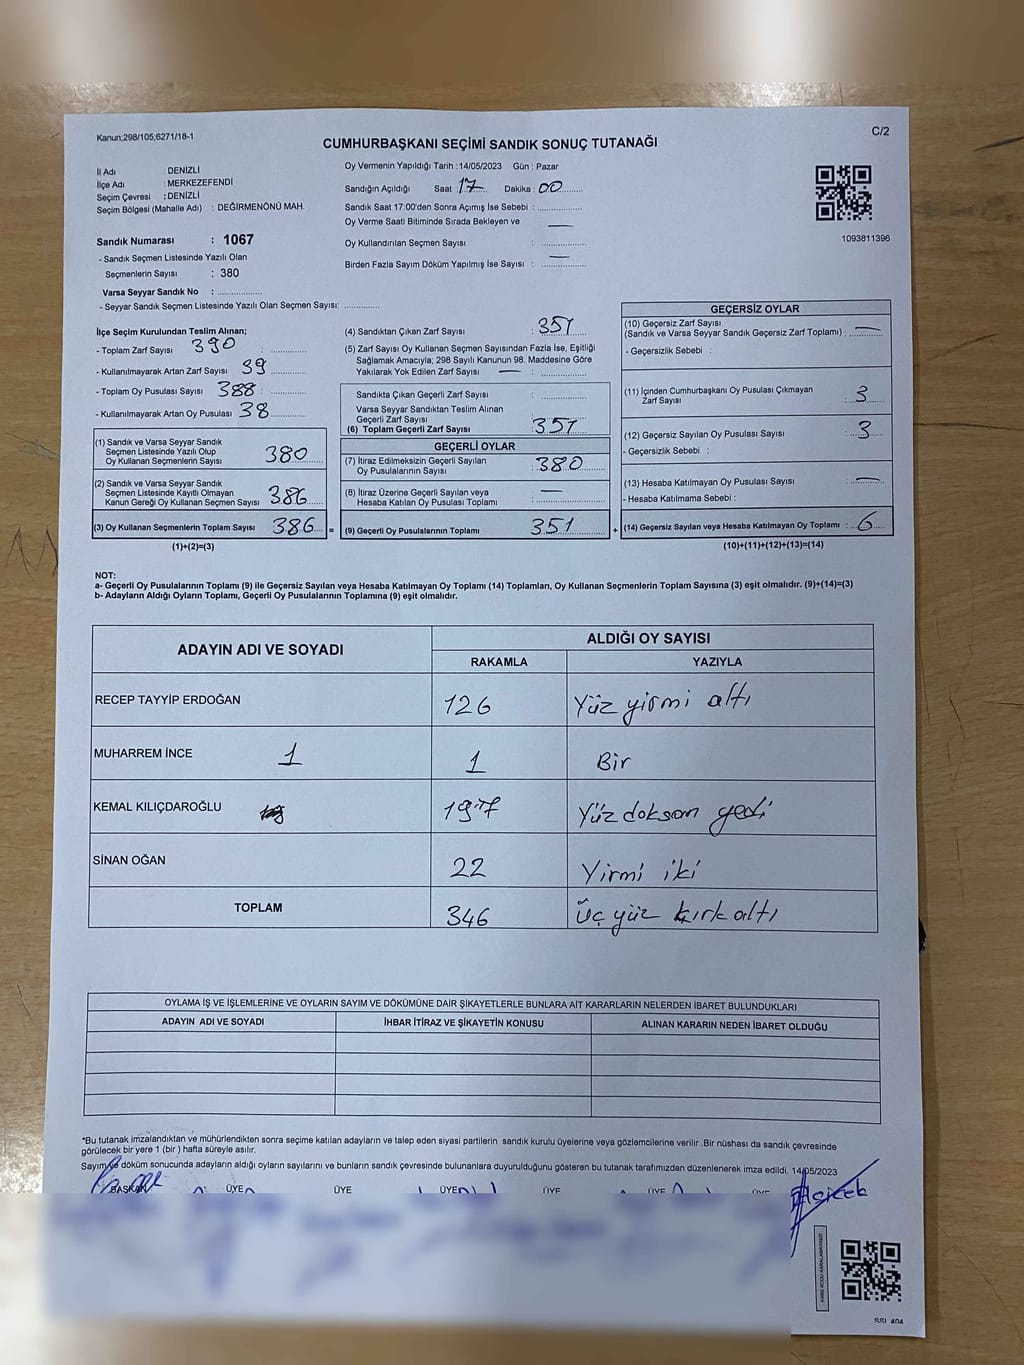 Kanun;298/105,6271/18-1
C/2
CUMHURBAŞKANI SEÇİMİ SANDIK SONUÇ TUTANAĞI
İl Adı : DENİZLİ
İlçe Adı : MERKEZEFENDİ
Seçim Çevresi : DENİZLİ
Seçim Bölgesi (Mahalle Adı) : DEĞİRMENÖNÜ MAH.
Sandık Numarası : 1067
- Sandık Seçmen Listesinde Yazılı Olan
Seçmenlerin Sayısı : 380
Varsa Seyyar Sandık No :
- Seyyar Sandık Seçmen Listesinde Yazılı Olan Seçmen Sayısı:
Oy Vermenin Yapıldığı Tarih :14/05/2023 Gün : Pazar
Sandığın Açıldığı Saat 17 Dakika : 00
Sandık Saat 17:00'den Sonra Açımış İse Sebebi :
Oy Verme Saati Bitiminde Sırada Bekleyen ve
Oy Kullandırılan Seçmen Sayısı :
Birden Fazla Sayım Döküm Yapılmış İse Sayısı :
1093811396
İlçe Seçim Kurulundan Teslim Alınan;
- Toplam Zarf Sayısı 390
- Kullanılmayarak Artan Zarf Sayısı 39
- Toplam Oy Pusulası Sayısı 388
- Kullanılmayarak Artan Oy Pusulası 38
(1) Sandık ve Varsa Seyyar Sandık
Seçmen Listesinde Yazılı Olup
Oy Kullanan Seçmenlerin Sayısı 380
(2) Sandık ve Varsa Seyyar Sandık
Seçmen Listesinde Kayıtlı Olmayan
Kanun Gereği Oy Kullanan Seçmen Sayısı 386
(3) Oy Kullanan Seçmenlerin Toplam Sayısı 386 =
(1)+(2)=(3)
(4) Sandıktan Çıkan Zarf Sayısı : 351
(5) Zarf Sayısı Oy Kullanan Seçmen Sayısından Fazla İse, Eşitliği
Sağlamak Amacıyla; 298 Sayılı Kanunun 98. Maddesine Göre
Yakılarak Yok Edilen Zarf Sayısı :
Sandıkta Çıkan Geçerli Zarf Sayısı :
Varsa Seyyar Sandıktan Teslim Alınan
Geçerli Zarf Sayısı :
(6) Toplam Geçerli Zarf Sayısı : 351
GEÇERLİ OYLAR
(7) İtiraz Edilmeksizin Geçerli Sayılan
Oy Pusulalarının Sayısı : 380
(8) İtiraz Üzerine Geçerli Sayılan veya
Hesaba Katılan Oy Pusulası Toplamı :
(9) Geçerli Oy Pusulalarının Toplamı : 351 +
GEÇERSİZ OYLAR
(10) Geçersiz Zarf Sayısı
(Sandık ve Varsa Seyyar Sandık Geçersiz Zarf Toplamı) :
- Geçersizlik Sebebi :
(11) İçinden Cumhurbaşkanı Oy Pusulası Çıkmayan
Zarf Sayısı : 3
(12) Geçersiz Sayılan Oy Pusulası Sayısı : 3
- Geçersizlik Sebebi :
(13) Hesaba Katılmayan Oy Pusulası Sayısı :
- Hesaba Katılmama Sebebi :
(14) Geçersiz Sayılan veya Hesaba Katılmayan Oy Toplamı : 6
(10)+(11)+(12)+(13)=(14)
NOT:
a- Geçerli Oy Pusulalarının Toplamı (9) ile Geçersiz Sayılan veya Hesaba Katılmayan Oy Toplamı (14) Toplamları, Oy Kullanan Seçmenlerin Toplam Sayısına (3) eşit olmalıdır. (9)+(14)=(3)
b- Adayların Aldığı Oyların Toplamı, Geçerli Oy Pusulalarının Toplamına (9) eşit olmalıdır.
ADAYIN ADI VE SOYADI
ALDIĞI OY SAYISI
RAKAMLA YAZIYLA
RECEP TAYYİP ERDOĞAN 126 Yüz yirmi altı
MUHARREM İNCE 1 1 Bir
KEMAL KILIÇDAROĞLU 197 Yüz doksan yedi
SİNAN OĞAN 22 Yirmi iki
TOPLAM 346 Üç yüz kırk altı
OYLAMA İŞ VE İŞLEMLERİNE VE OYLARIN SAYIM VE DÖKÜMÜNE DAİR ŞİKAYETLERLE BUNLARA AİT KARARLARIN NELERDEN İBARET BULUNDUKLARI
ADAYIN ADI VE SOYADI İHBAR İTİRAZ VE ŞİKAYETİN KONUSU ALINAN KARARIN NEDEN İBARET OLDUĞU
*Bu tutanak imzalandıktan ve mühürlendikten sonra seçime katılan adayların ve talep eden siyasi partilerin sandık kurulu üyelerine veya gözlemcilerine verilir .Bir nüshası da sandık çevresinde
görülecek bir yere 1 (bir) hafta süreyle asılır.
Sayım ve döküm sonucunda adayların aldığı oyların sayılarını ve bunların sandık çevresinde bulunanlara duyurulduğunu gösteren bu tutanak tarafımızdan düzenlenerek imza edildi. 14/05/2023
BAŞKAN ÜYE ÜYE ÜYE ÜYE ÜYE ÜYE
SSI_404